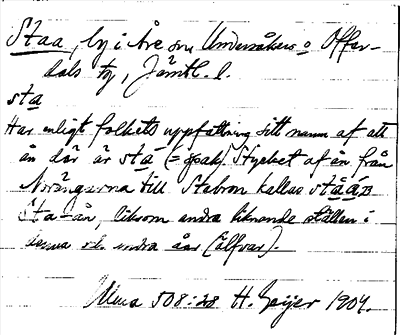 Staa, by i Åre sn Undersåkers o Offer-
dals tg, Jämtl. l.
sta
Har enligt folkets uppfattning sitt namn af att
ån där är sta (= spak). Stycket af ån från
till Stabron kallas
Sta-ån, liksom andra liknande ställen i
denna och andra åar (älfvar).
Ulma 508:28 H. Geijer 1904.